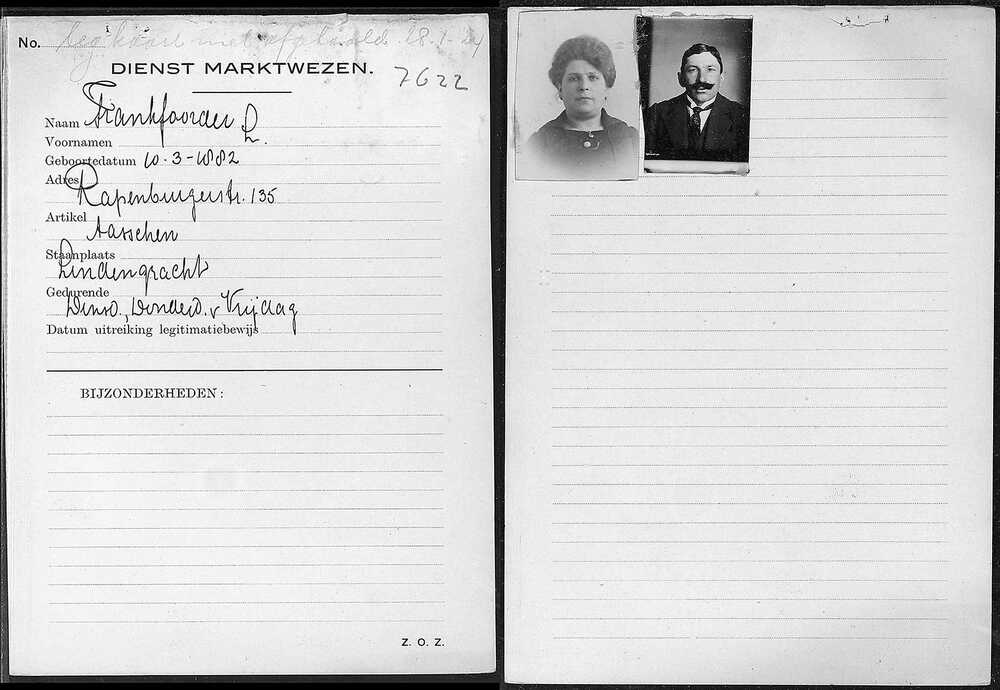 No. leg. kaart niet afgehaald. 28-1-24
DIENST MARKTWEZEN. 7622
Naam Frankfoorder L.
Voornamen
Geboortedatum 10-3-1882
Adres
Rapenburgerstr. 135
Artikel
Aasschen
Staanplaats
Lindengracht
Gedurende
Dinsd., Donderd. v Vrijdag
Datum uitreiking legitimatiebewijs
BIJZONDERHEDEN:
Z. O. Z.